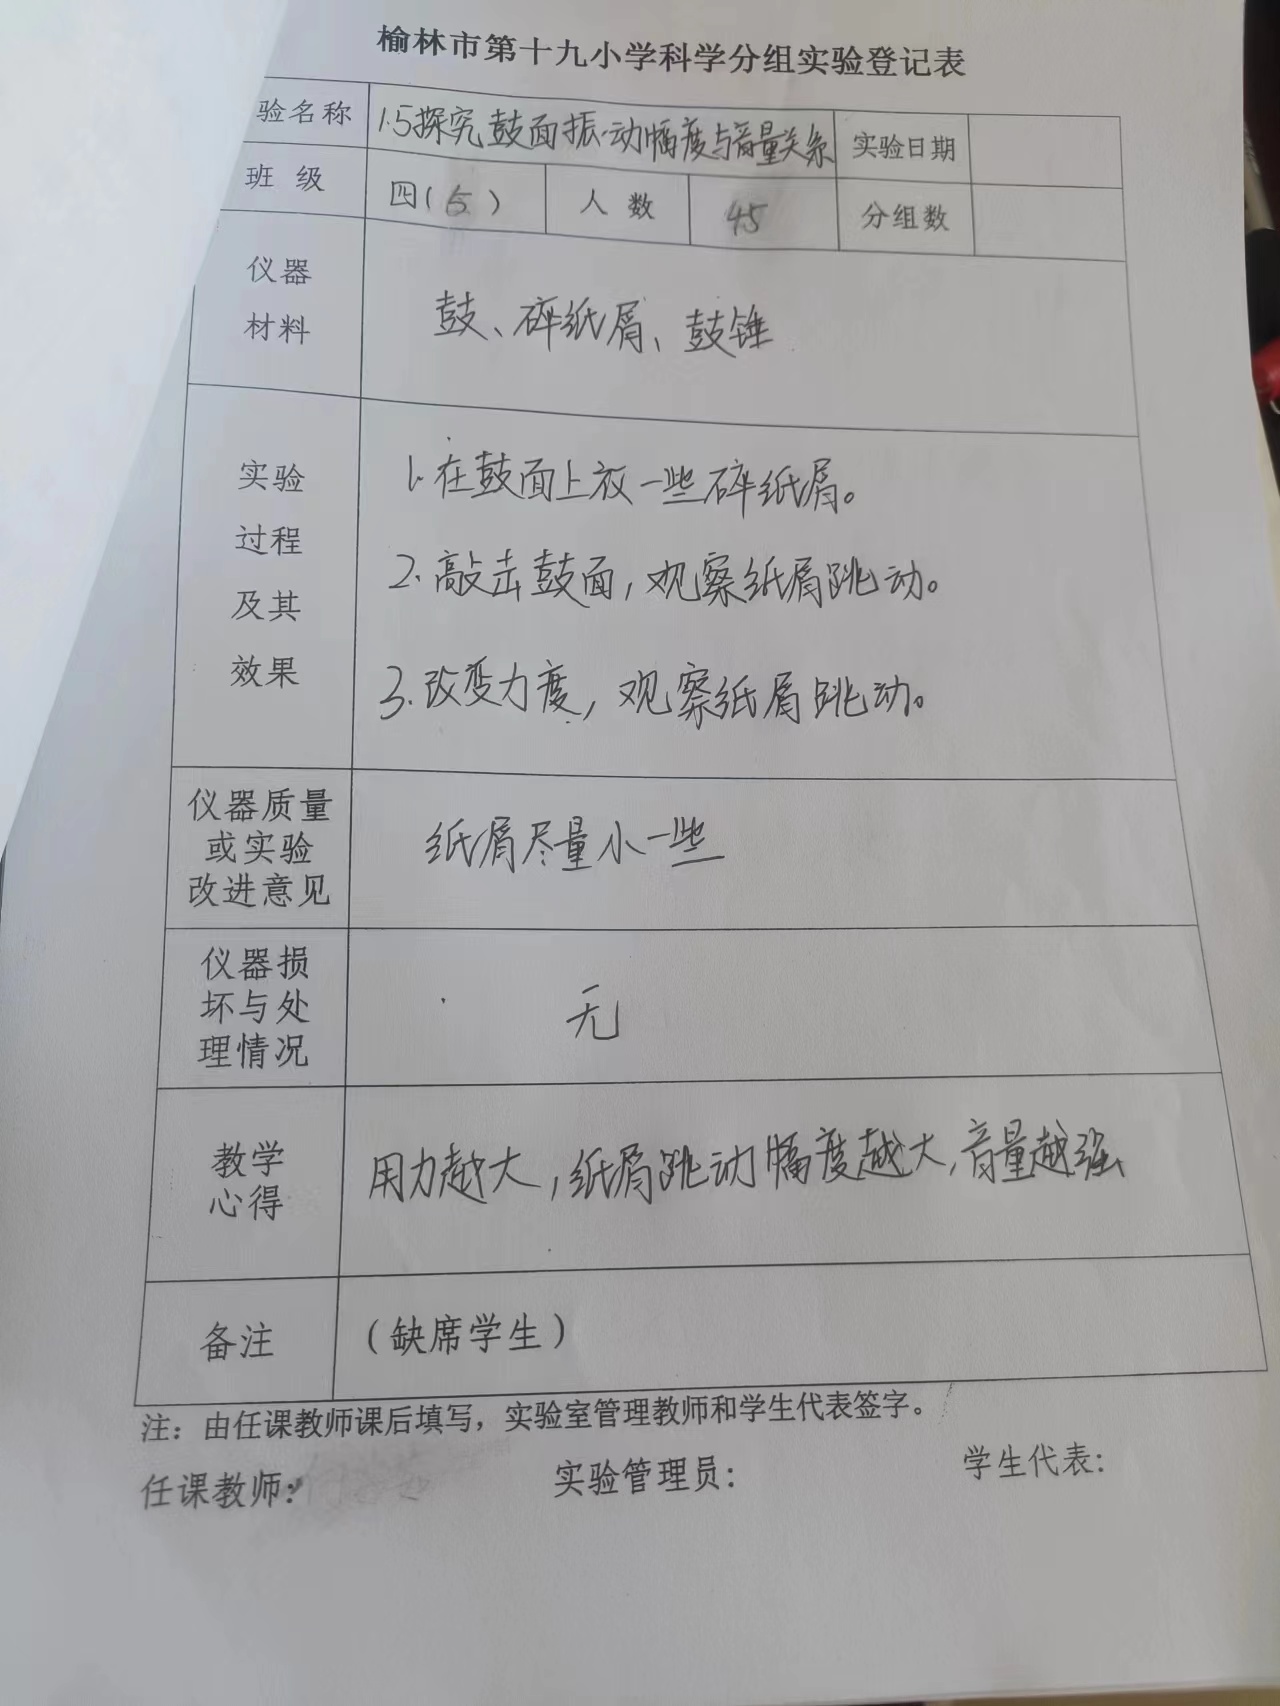 榆林市第十九小学科学分组实验登记表
验名称 1.5探究鼓面振动幅度与音量关系 实验日期
班 级 四(5) 人 数 45 分组数
仪器
材料
鼓、碎纸屑、鼓锤
实验
过程
及其
效果
1.在鼓面上放一些碎纸屑。
2.敲击鼓面,观察纸屑跳动。
3.改变力度,观察纸屑跳动。
仪器质量
或实验
改进意见
纸屑尽量小一些
仪器损
坏与处
理情况
无
教学
心得
用力越大,纸屑跳动幅度越大,音量越强
备注 (缺席学生)
注:由任课教师课后填写,实验室管理教师和学生代表签字。
任课教师: 实验管理员: 学生代表: